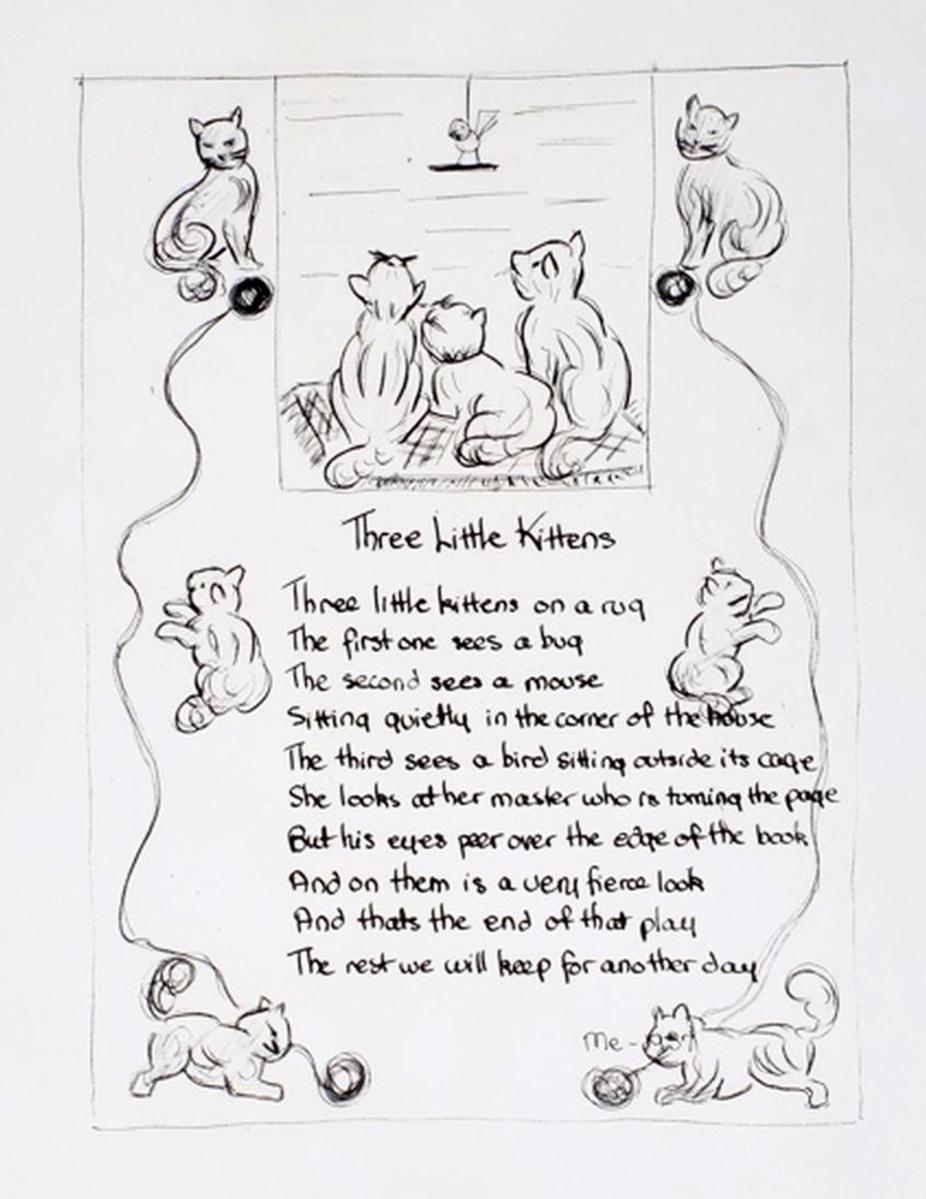 Three Little Kittens
Three little kittens on a rug
The first one sees a bug
The second sees a mouse
Sitting quietly in the corner of the house
The third sees a bird sitting outside its cage
She looks at her master who is turning the page
But his eyes peer over the edge of the book
And on them is a very fierce look
And thats the end of that play
The rest we will keep for another day
Me - 1951